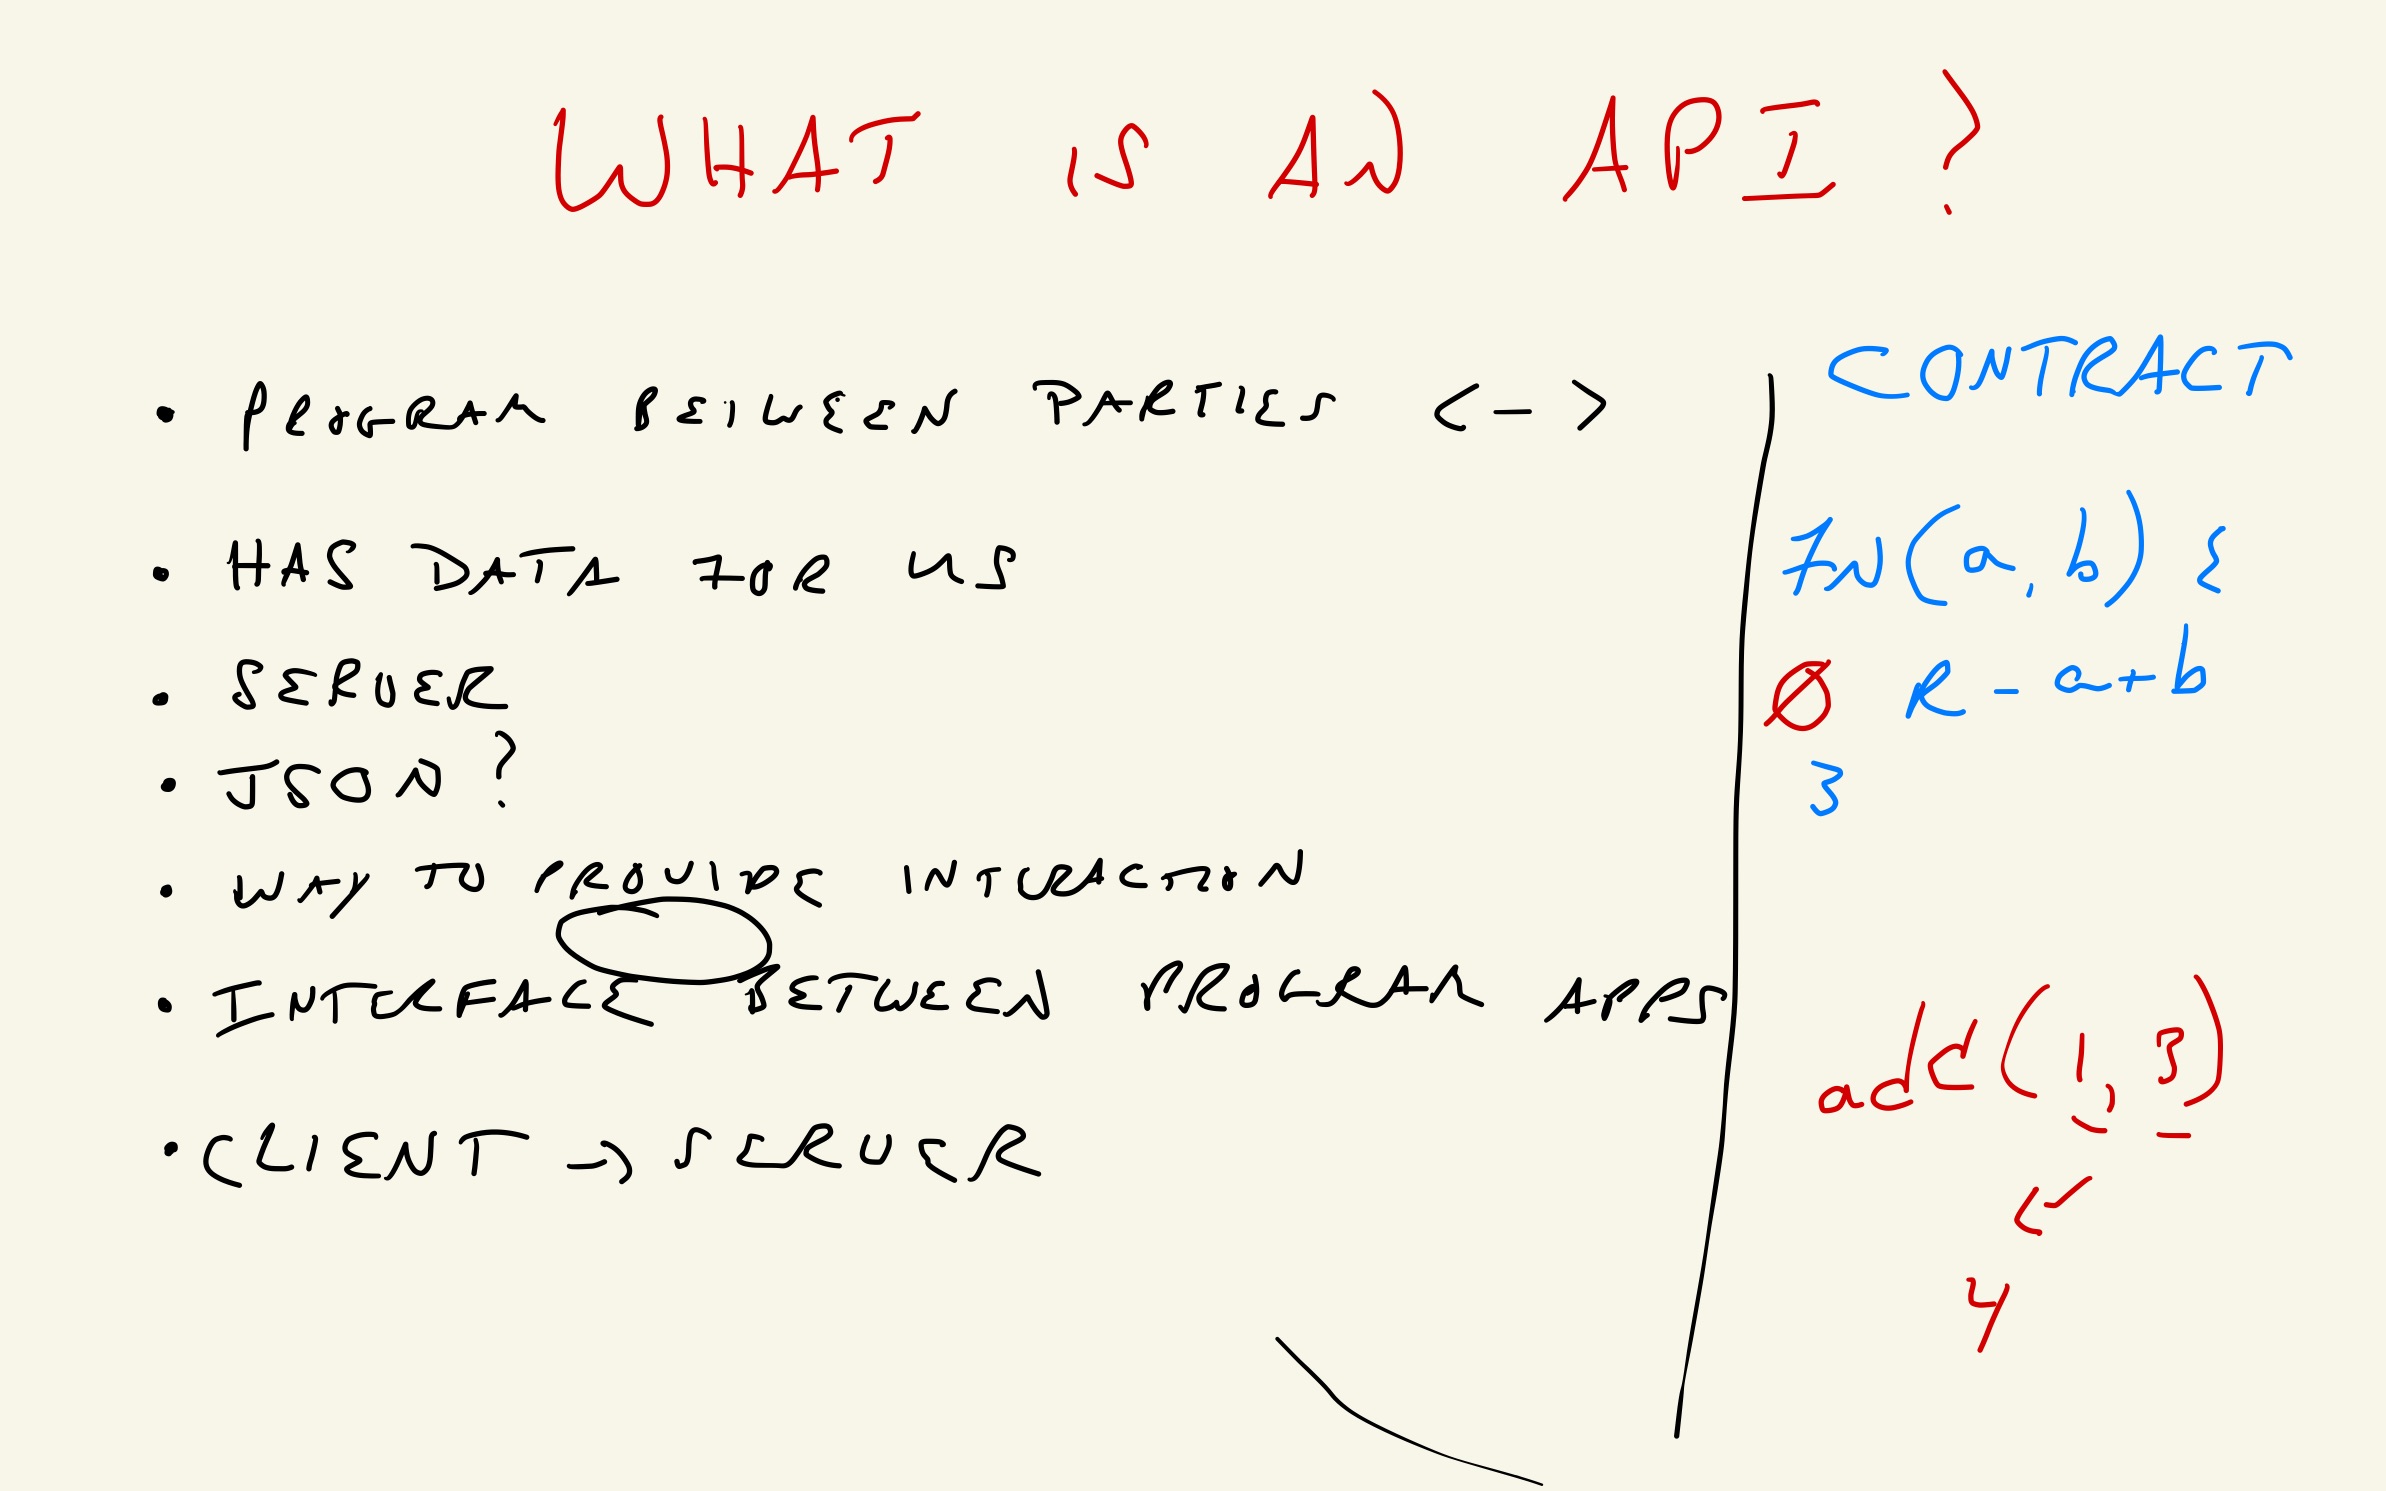 WHAT IS AN API ?
• PROGRAM BETWEEN PARTIES <->
• HAS DATA FOR US
• SERVER
• JSON ?
• WAY TO PROVIDE INTERACTION
• INTERFACE BETWEEN PROGRAM APPS
• CLIENT -> SERVER
CONTRACT
FN(a, b) {
Ø R - a + b
3
add(1, 3)
4